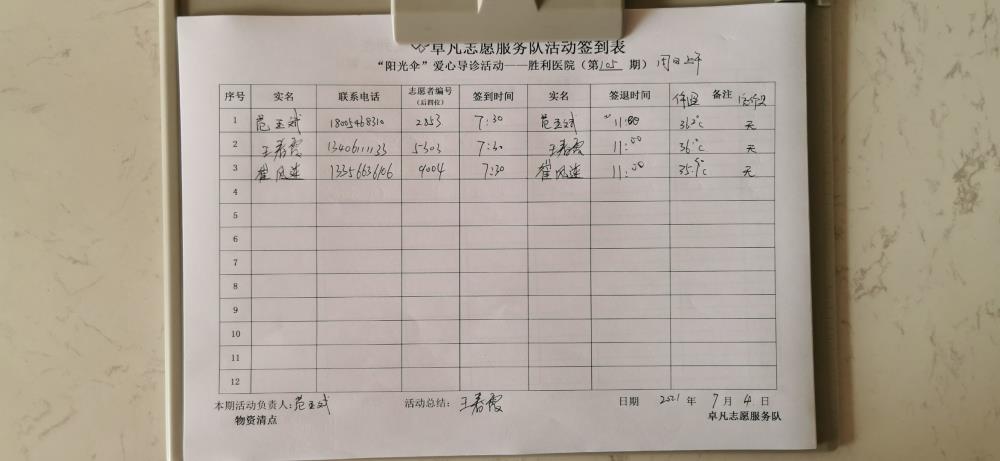 卓凡志愿服务队活动签到表
“阳光伞”爱心导诊活动——胜利医院（第105期）周日上午
序号 实名 联系电话 志愿者编号（后四位） 签到时间 实名 签退时间 体温 备注
1 范玉斌 18005468310 2853 7:30 范玉斌 11:00 36.2℃ 无
2 王春霞 13406111133 5303 7:30 王春霞 11:00 36℃ 无
3 崔凤莲 13356636106 9004 7:30 崔凤莲 11:00 35.9℃ 无
4
5
6
7
8
9
10
11
12
本期活动负责人:范玉斌 活动总结: 王春霞 日期 2021 年 7 月 4 日
物资清点 卓凡志愿服务队